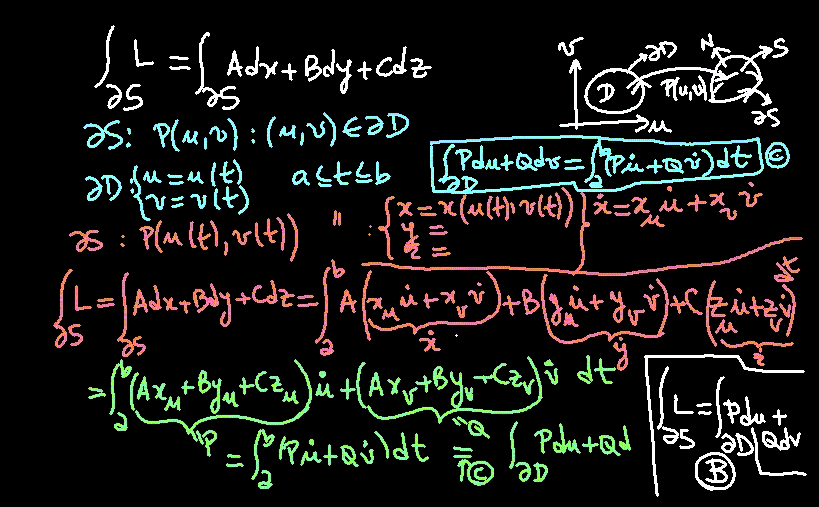 ∫_∂S L = ∫_∂S Adx + Bdy + Cdz
v D ∂D P(u,v) N S ∂S u
∂S: P(u,v) : (u,v) ∈ ∂D
∂D: { u = u(t) v = v(t) a ≤ t ≤ b
∫_∂D Pdu + Qdv = ∫_a^b (Pu̇ + Qv̇) dt ©
∂S : P(u(t), v(t)) " : { x = x(u(t), v(t)) y = z = } ẋ = x_u u̇ + x_v v̇
∫_∂S L = ∫_∂S Adx + Bdy + Cdz = ∫_a^b A(x_u u̇ + x_v v̇) + B(y_u u̇ + y_v v̇) + C(z_u u̇ + z_v v̇) dt
ẋ ẏ ż
= ∫_a^b (Ax_u + By_u + Cz_u) u̇ + (Ax_v + By_v + Cz_v) v̇ dt
"P "Q
= ∫_a^b (Pu̇ + Qv̇) dt = ↑© ∫_∂D Pdu + Qd
∫_∂S L = ∫_∂D Pdu + Qdv
B